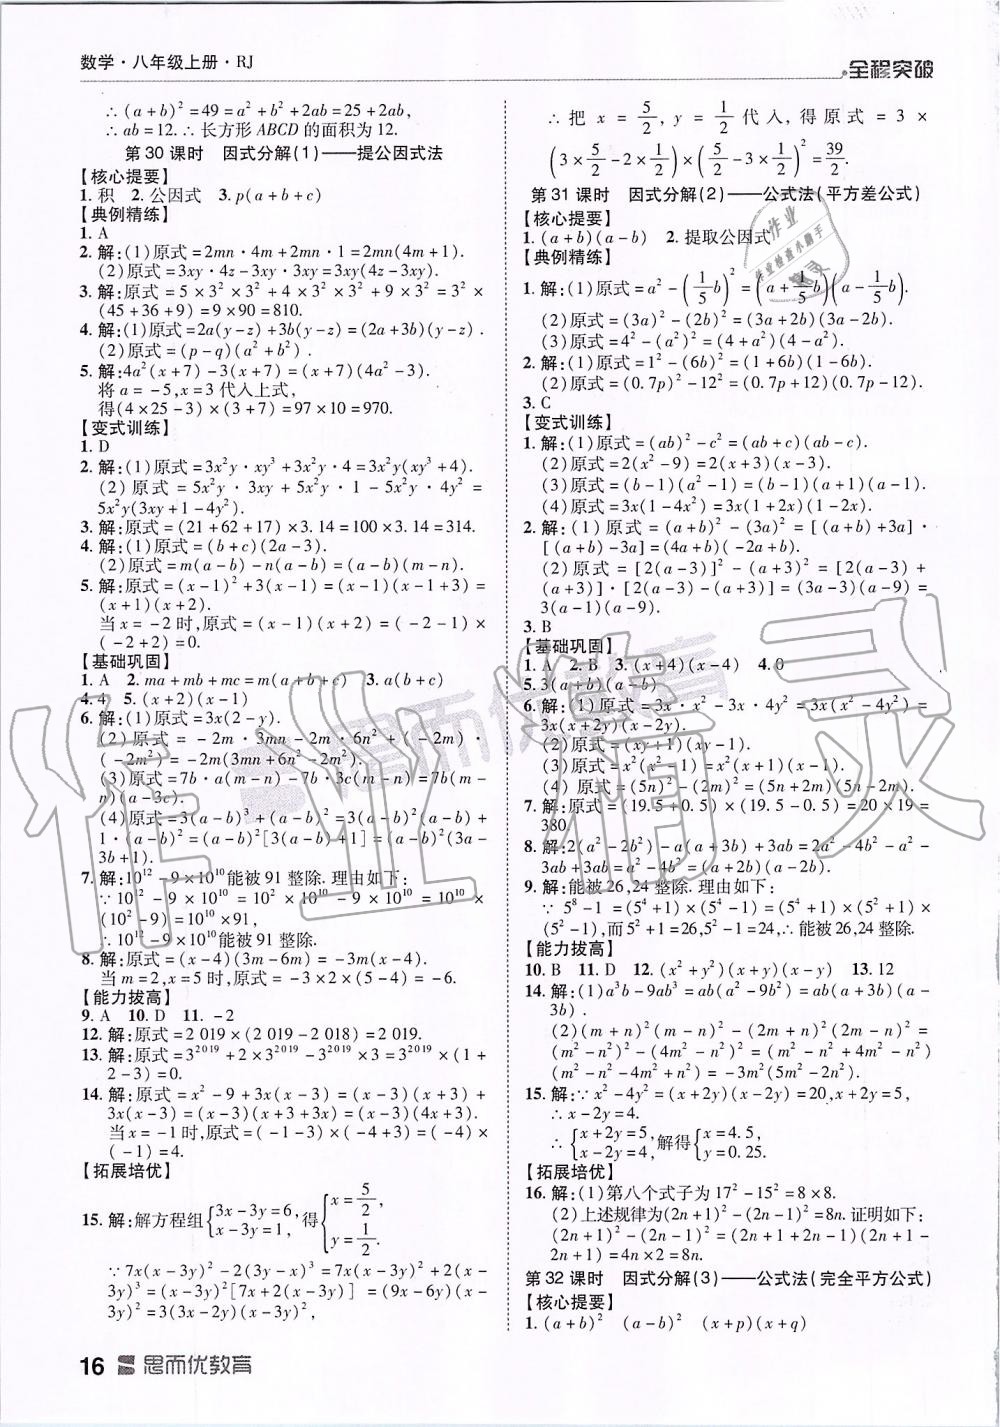 数学·八年级上册·RJ
全程突破
∴(a+b)²=49=a²+b²+2ab=25+2ab,
∴ab=12.∴长方形ABCD的面积为12.
第30课时 因式分解(1)——提公因式法
【核心提要】
1.积 2.公因式 3.p(a+b+c)
【典例精练】
1.A
2.解:(1)原式=2mn·4m+2mn·1=2mn(4m+1).
(2)原式=3xy·4z-3xy·xy=3xy(4z-xy).
3.解:原式=5×3²×3²+4×3²×3²+9×3²=3²×
(45+36+9)=9×90=810.
4.解:(1)原式=2a(y-z)+3b(y-z)=(2a+3b)(y-z).
(2)原式=(p-q)(a²+b²).
5.解:4a²(x+7)-3(x+7)=(x+7)(4a²-3).
将a=-5,x=3代入上式,
得(4×25-3)×(3+7)=97×10=970.
【变式训练】
1.D
2.解:(1)原式=3x²y·xy³+3x²y·4=3x²y(xy³+4).
(2)原式=5x²y·3xy+5x²y·1-5x²y·4y²=
5x²y(3xy+1-4y²).
3.解:原式=(21+62+17)×3.14=100×3.14=314.
4.解:(1)原式=(b+c)(2a-3).
(2)原式=m(a-b)-n(a-b)=(a-b)(m-n).
5.解:原式=(x-1)²+3(x-1)=(x-1)(x-1+3)=
(x+1)(x+2).
当x=-2时,原式=(x-1)(x+2)=(-2-1)×
(-2+2)=0.
【基础巩固】
1.A 2.ma+mb+mc=m(a+b+c) 3.a(b+c)
4.4 5.(x+2)(x-1)
6.解:(1)原式=3x(2-y).
(2)原式=-2m·3mn-2m·6n²+(-2m)·
(-2m²)=-2m(3mn+6n²-2m²).
(3)原式=7b·a(m-n)-7b·3c(m-n)=7b(m-
n)(a-3c).
(4)原式=3(a-b)³+(a-b)²=3(a-b)²(a-b)+
1·(a-b)²=(a-b)²[3(a-b)+1]=(a-b)²(3a-
3b+1).
7.解:10¹²-9×10¹⁰能被91整除.理由如下:
∵10¹²-9×10¹⁰=10²×10¹⁰-9×10¹⁰=10¹⁰×
(10²-9)=10¹⁰×91,
∴10¹²-9×10¹⁰能被91整除.
8.解:原式=(x-4)(3m-6m)=-3m(x-4).
当m=2,x=5时,原式=-3×2×(5-4)=-6.
【能力拔高】
9.A 10.D 11.-2
12.解:原式=2 019×(2 019-2 018)=2 019.
13.解:原式=3²⁰¹⁹+2×3²⁰¹⁹-3²⁰¹⁹×3=3²⁰¹⁹×(1+
2-3)=0.
14.解:原式=x²-9+3x(x-3)=(x-3)(x+3)+
3x(x-3)=(x-3)(x+3+3x)=(x-3)(4x+3).
当x=-1时,原式=(-1-3)×(-4+3)=(-4)×
(-1)=4.
【拓展培优】
15.解:解方程组{3x-3y=6, x-3y=1,得{x=5/2, y=1/2.
∵7x(x-3y)²-2(3y-x)³=7x(x-3y)²+2(x-
3y)³=(x-3y)²[7x+2(x-3y)]=(9x-6y)(x-
3y)²=3(3x-2y)(x-3y)²,
∴把x=5/2,y=1/2代入,得原式=3×
(3×5/2-2×1/2)×(5/2-3×1/2)²=39/2.
第31课时 因式分解(2)——公式法(平方差公式)
【核心提要】
1.(a+b)(a-b) 2.提取公因式
【典例精练】
1.解:(1)原式=a²-(1/5b)²=(a+1/5b)(a-1/5b).
(2)原式=(3a)²-(2b)²=(3a+2b)(3a-2b).
(3)原式=4²-(a²)²=(4+a²)(4-a²).
2.解:(1)原式=1²-(6b)²=(1+6b)(1-6b).
(2)原式=(0.7p)²-12²=(0.7p+12)(0.7p-12).
3.C
【变式训练】
1.解:(1)原式=(ab)²-c²=(ab+c)(ab-c).
(2)原式=2(x²-9)=2(x+3)(x-3).
(3)原式=(b-1)(a²-1)=(b-1)(a+1)(a-1).
(4)原式=3x(1-4x²)=3x(1+2x)(1-2x).
2.解:(1)原式=(a+b)²-(3a)²=[(a+b)+3a]·
[(a+b)-3a]=(4a+b)(-2a+b).
(2)原式=[2(a-3)]²-(a+3)²=[2(a-3)+
(a+3)]·[2(a-3)-(a+3)]=(3a-3)(a-9)=
3(a-1)(a-9).
3.B
【基础巩固】
1.A 2.B 3.(x+4)(x-4) 4.0
5.3(a+b)(a-b)
6.解:(1)原式=3x·x²-3x·4y²=3x(x²-4y²)=
3x(x+2y)(x-2y).
(2)原式=(xy+1)(xy-1).
(3)原式=x²(x²-1)=x²(x+1)(x-1).
(4)原式=(5n)²-(2m)²=(5n+2m)(5n-2m).
7.解:原式=(19.5+0.5)×(19.5-0.5)=20×19=
380.
8.解:2(a²-2b²)-a(a+3b)+3ab=2a²-4b²-a²-
3ab+3ab=a²-4b²=(a+2b)(a-2b).
9.解:能被26,24整除.理由如下:
∵5⁸-1=(5⁴+1)×(5⁴-1)=(5⁴+1)×(5²+1)×
(5²-1),而5²+1=26,5²-1=24,∴能被26,24整除.
【能力拔高】
10.B 11.D 12.(x²+y²)(x+y)(x-y) 13.12
14.解:(1)a³b-9ab³=ab(a²-9b²)=ab(a+3b)(a-
3b).
(2)(m+n)²(m-2n)²-(2m+n)²(2m-n)²=
(m²-n²)²-(4m²-n²)²=(m²-n²+4m²-n²)
(m²-n²-4m²+n²)=-3m²(5m²-2n²).
15.解:∵x²-4y²=(x+2y)(x-2y)=20,x+2y=5,
∴x-2y=4.
∴{x+2y=5, x-2y=4,解得{x=4.5, y=0.25.
【拓展培优】
16.解:(1)第八个式子为17²-15²=8×8.
(2)上述规律为(2n+1)²-(2n-1)²=8n.证明如下:
(2n+1)²-(2n-1)²=(2n+1+2n-1)(2n+1-
2n+1)=4n×2=8n.
第32课时 因式分解(3)——公式法(完全平方公式)
【核心提要】
1.(a+b)² (a-b)² (x+p)(x+q)
16 思而优教育
作业精灵
思而优教育
作业
作业检查小助手
精灵